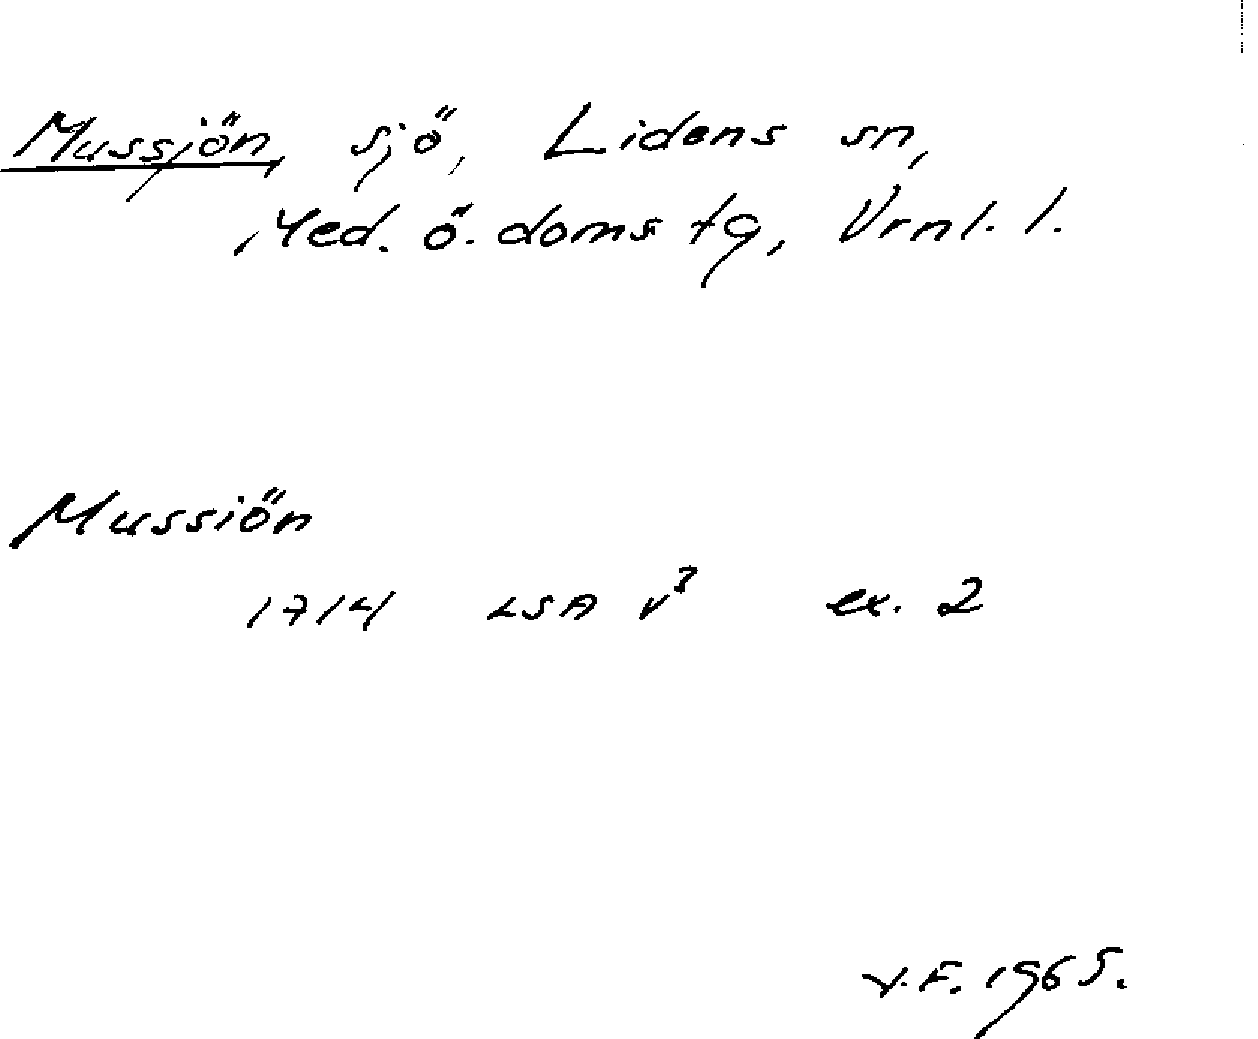 Mussjön, sjö, Lidens sn,
Med. ö. doms tg, Vrnl. l.
Mussiön
1714 LSA V³ ex. 2
V.F. 1965.